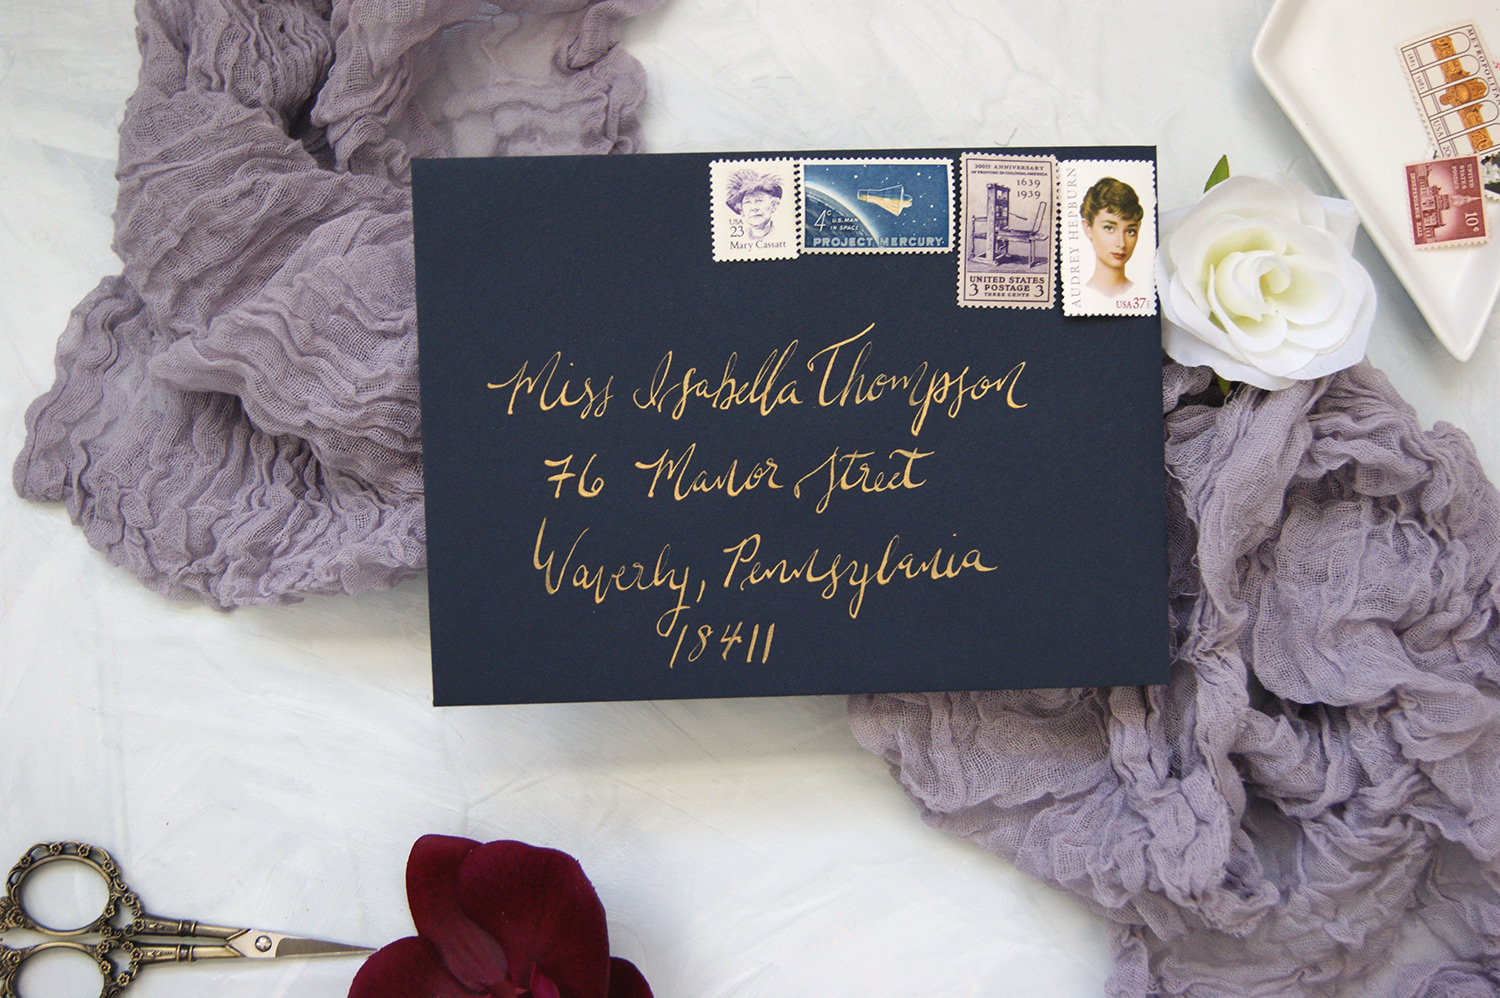 USA
23
Mary Cassatt
4¢ U.S. MAN
IN SPACE
PROJECT MERCURY
300TH ANNIVERSARY
OF PRINTING IN COLONIAL AMERICA
1639
1939
UNITED STATES
3 POSTAGE 3
THREE CENTS
AUDREY HEPBURN
USA 37
Miss Isabella Thompson
76 Manor Street
Waverly, Pennsylvania
18411
METROPOLITA
USA
UNITED
STATES
POSTAGE
10¢